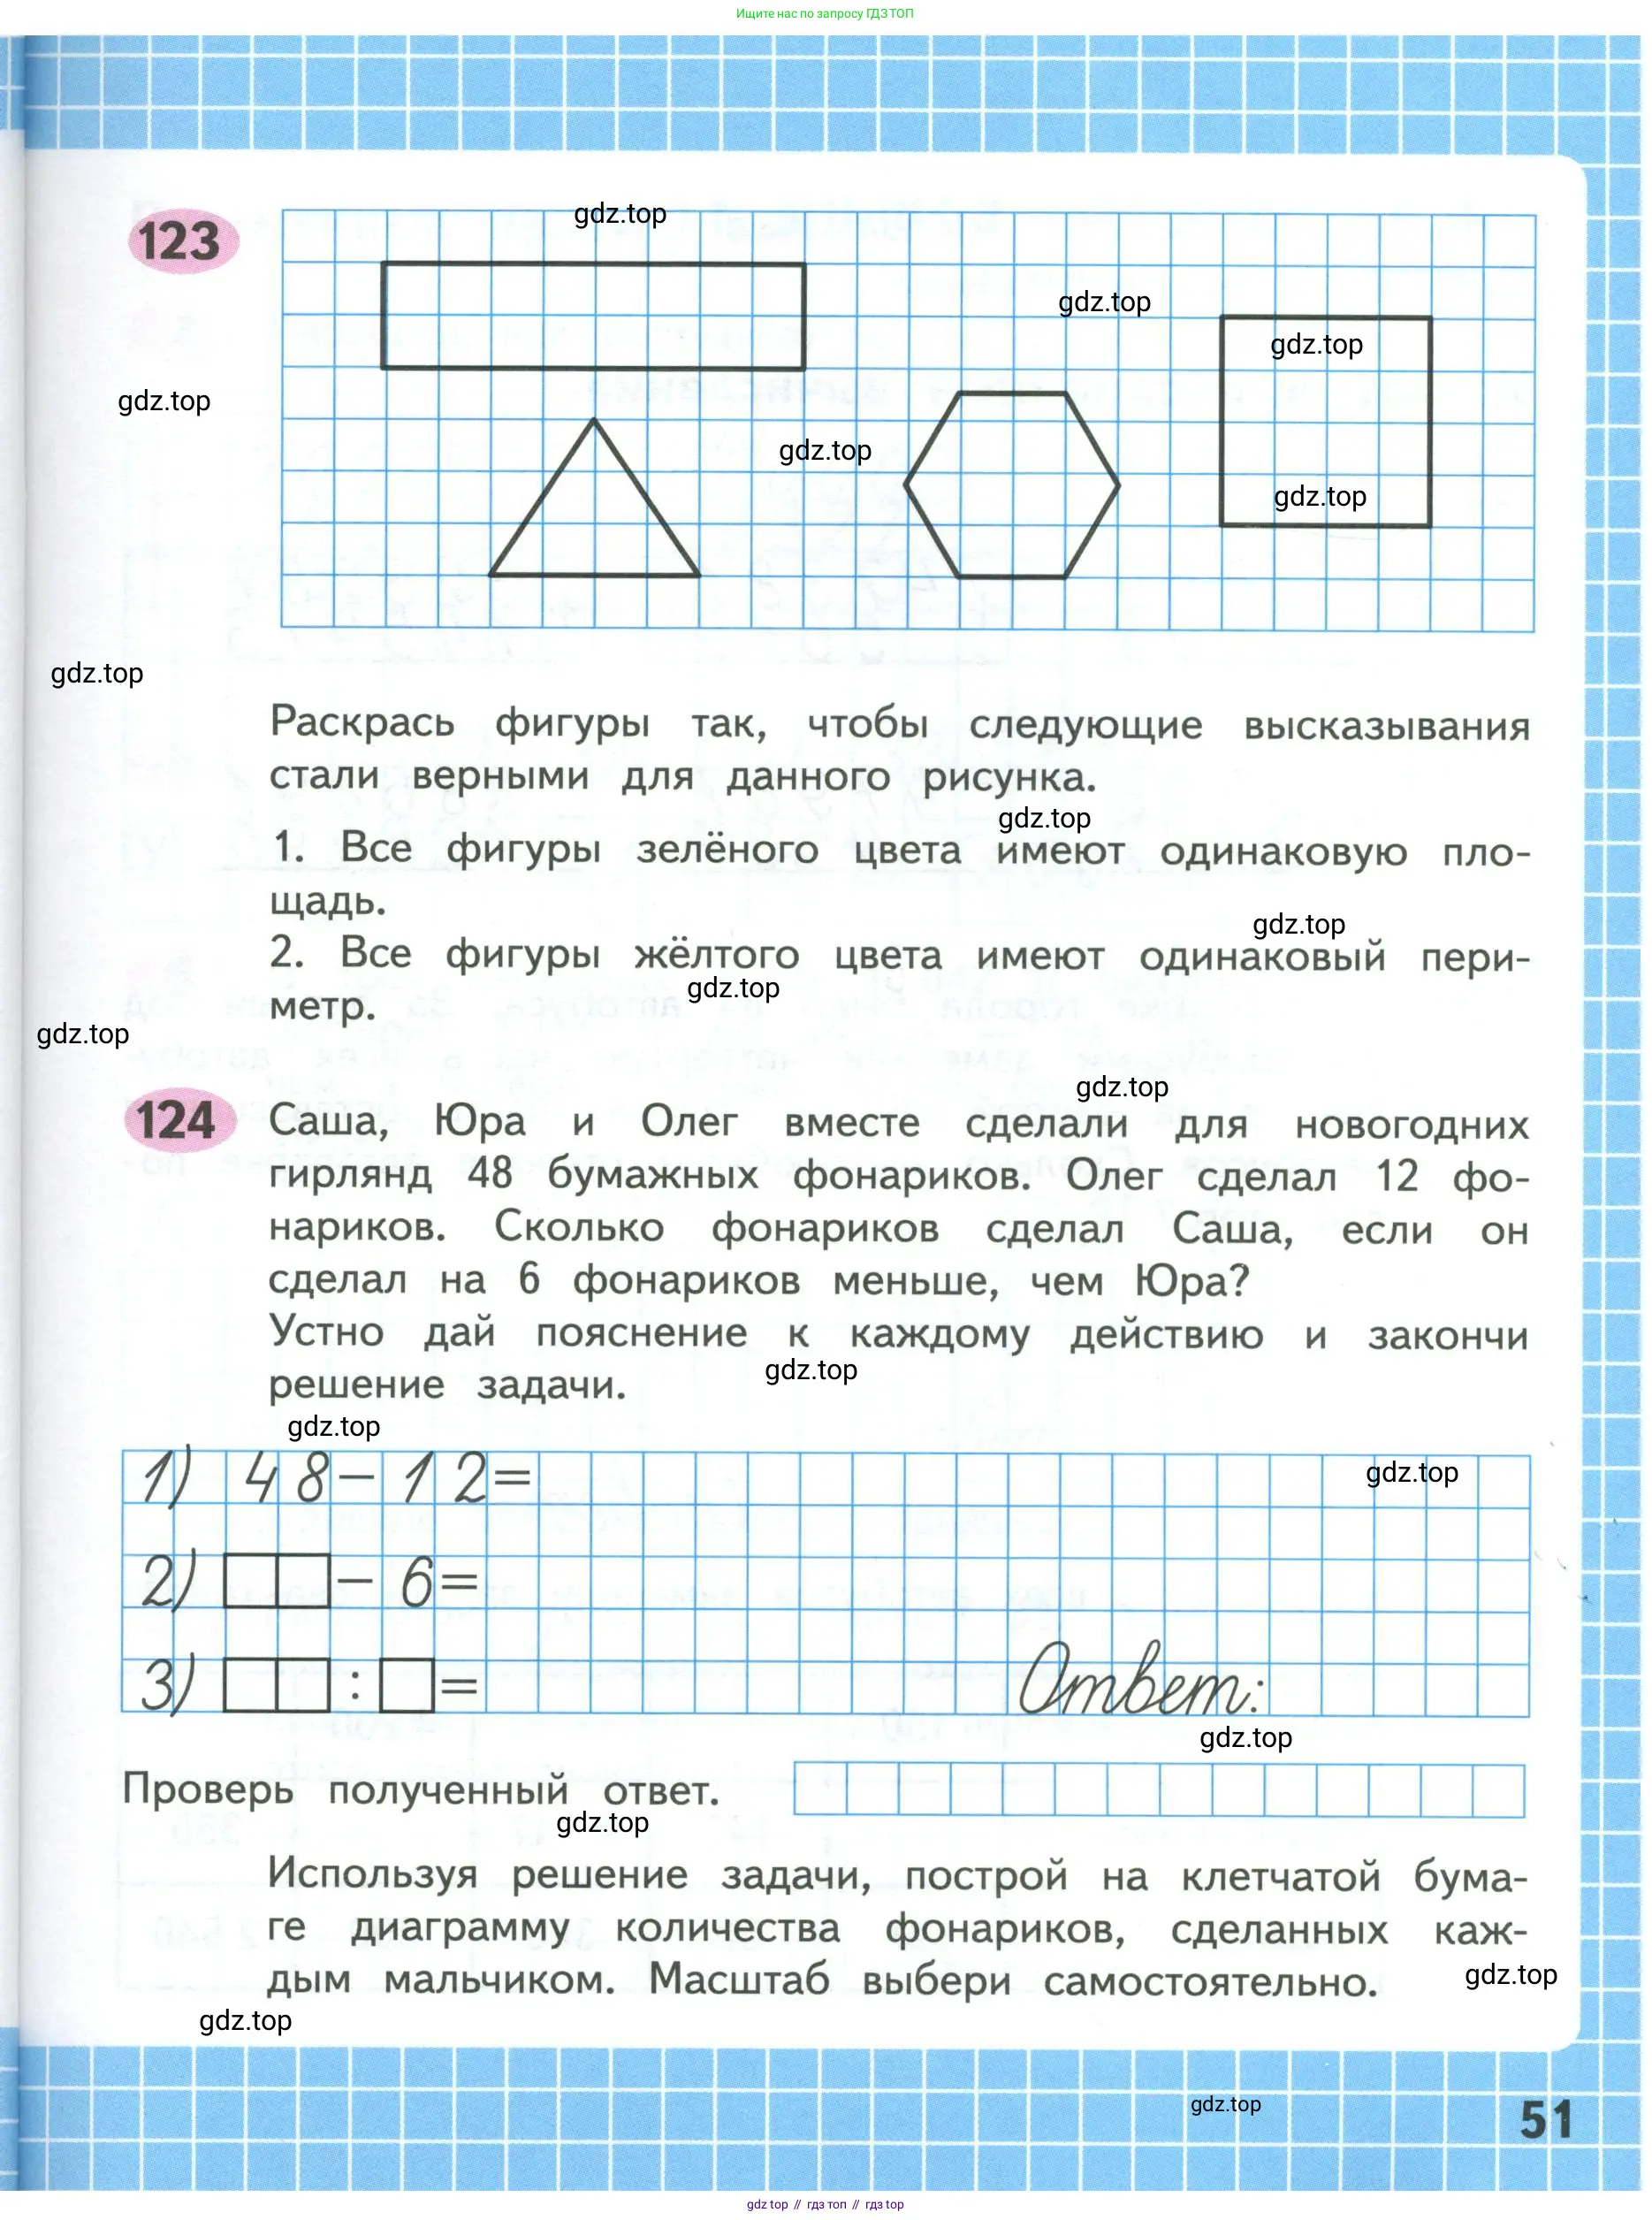 Ищите нас по запросу ГДЗ ТОП
123
gdz.top
gdz.top
gdz.top
gdz.top
gdz.top
gdz.top
gdz.top
Раскрась фигуры так, чтобы следующие высказывания
стали верными для данного рисунка.
gdz.top
1. Все фигуры зелёного цвета имеют одинаковую пло-
щадь.
gdz.top
2. Все фигуры жёлтого цвета имеют одинаковый пери-
gdz.top
метр.
gdz.top
gdz.top
124
Саша, Юра и Олег вместе сделали для новогодних
гирлянд 48 бумажных фонариков. Олег сделал 12 фо-
нариков. Сколько фонариков сделал Саша, если он
сделал на 6 фонариков меньше, чем Юра?
Устно дай пояснение к каждому действию и закончи
gdz.top
решение задачи.
gdz.top
1) 48-12=
gdz.top
2) - 6=
3) : =
Ответ:
gdz.top
Проверь полученный ответ.
gdz.top
Используя решение задачи, построй на клетчатой бума-
ге диаграмму количества фонариков, сделанных каж-
дым мальчиком. Масштаб выбери самостоятельно.
gdz.top
gdz.top
gdz.top
51
gdz top // гдз топ // гдз top